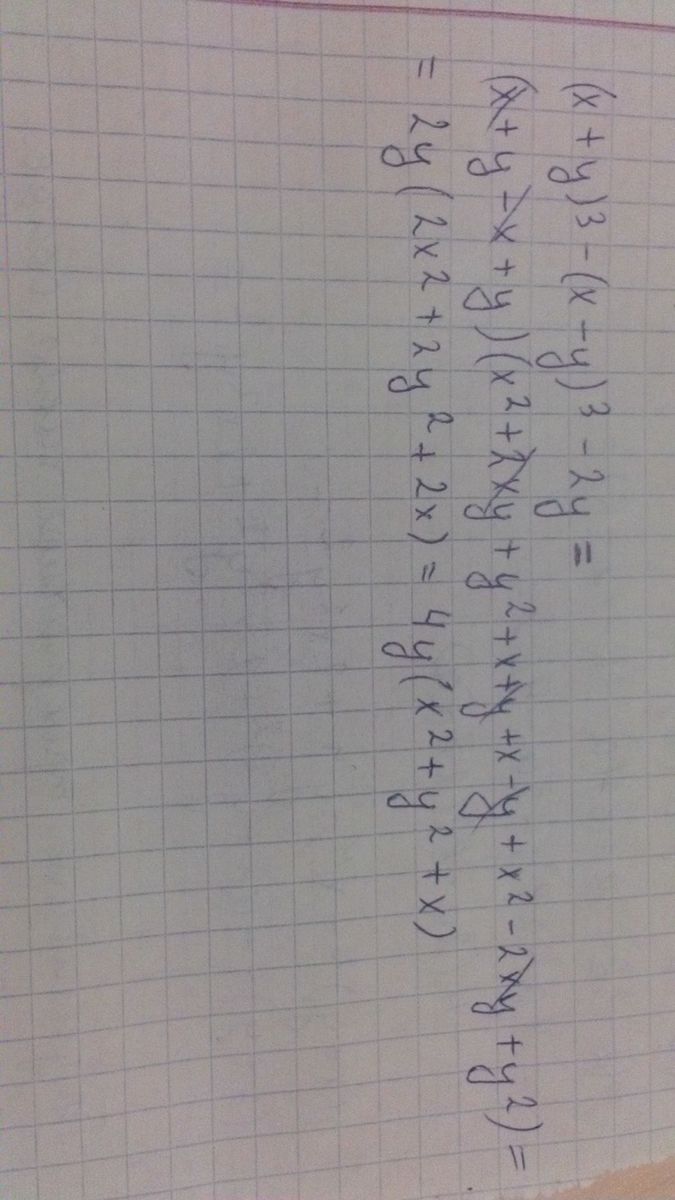 (x + y)³ - (x - y)³ - 2y =
(x + y - x + y) (x² + 2xy + y² + x + y + x - y + x² - 2xy + y²) =
= 2y (2x² + 2y² + 2x) = 4y (x² + y² + x)